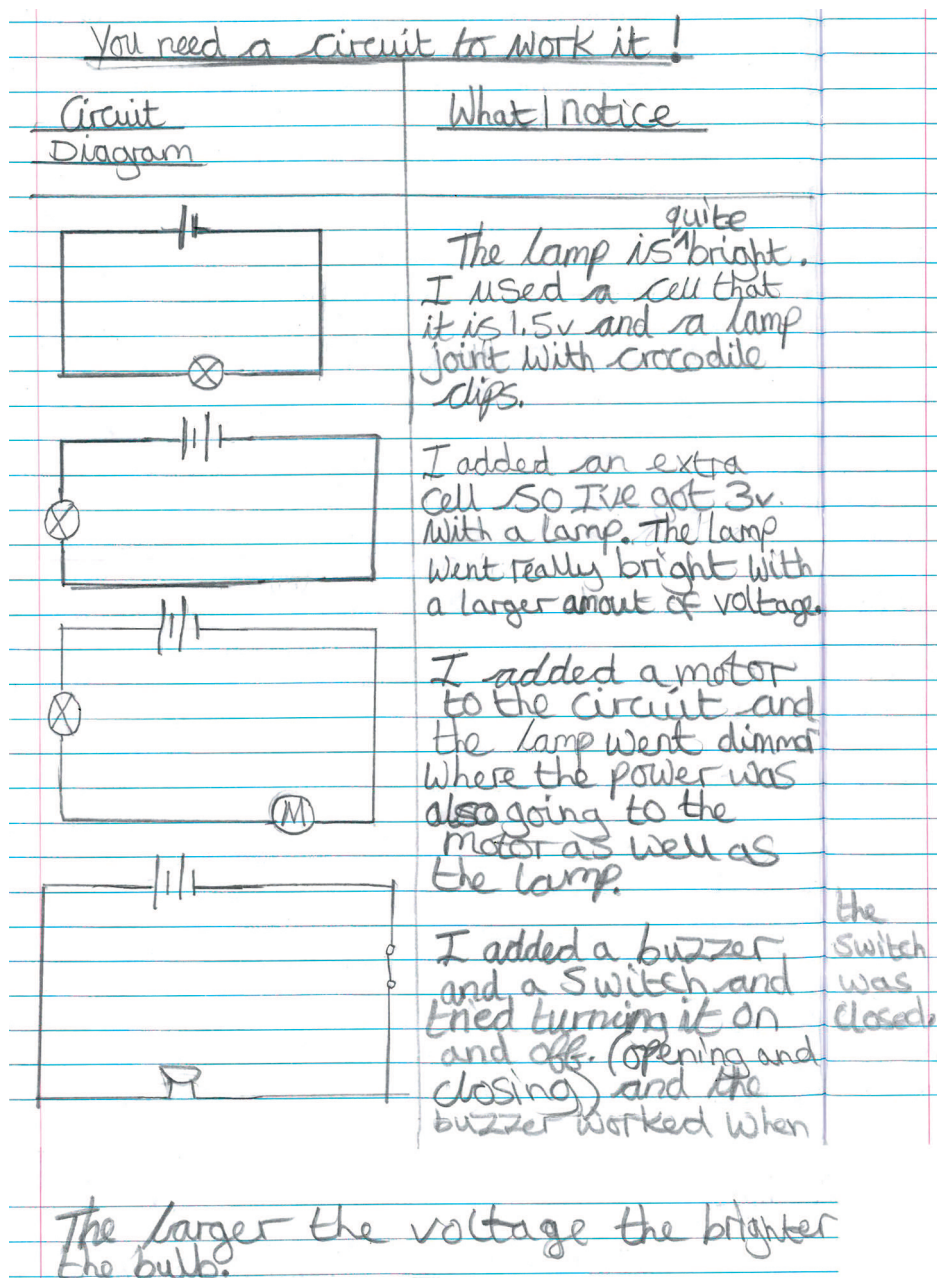 You need a circuit to work it!
Circuit
Diagram
What I notice
quite
The lamp is ^ bright.
I used a cell that
it is 1.5v and a lamp
joint with crocodile
clips.
I added an extra
cell so I've got 3v.
With a lamp. The lamp
went really bright with
a larger amout of voltage.
I added a motor
to the circuit and
the lamp went dimmer
where the power was
also going to the
motor as well as
the lamp.
M
I added a buzzer
and a switch and
tried turning it on
and off. (opening and
closing) and the
buzzer worked when
the
switch
was
closed.
The larger the voltage the brighter
the bulb.